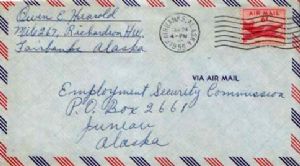 Owen E. Hearold
Mile 267, Richardson Hw.
Fairbanks Alaska
FAIRBANKS, ALASKA
4 - PM
1956
AIR MAIL
VIA AIR MAIL
Employment Security Commission
P.O. Box 2661
Juneau
Alaska